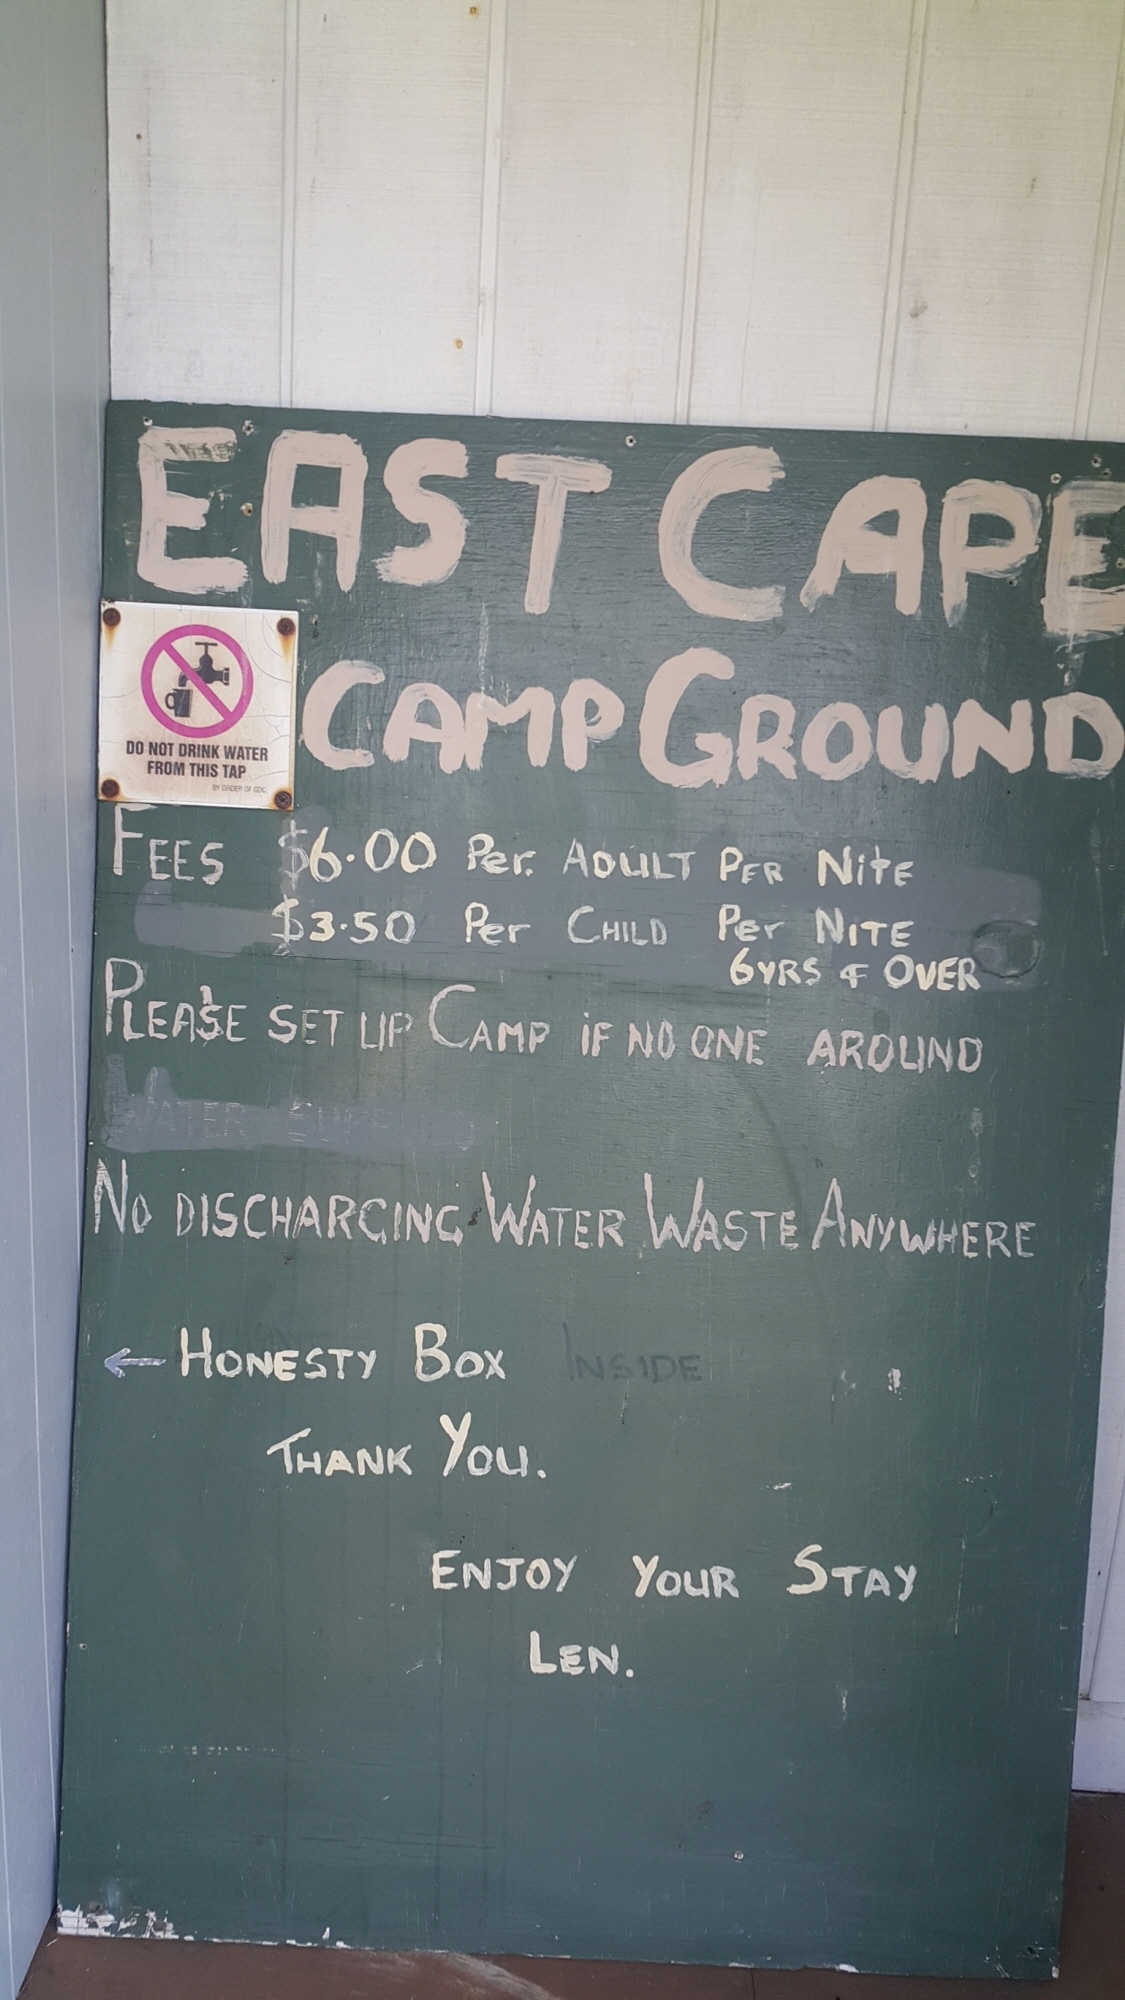 EAST CAPE
CAMP GROUND
DO NOT DRINK WATER
FROM THIS TAP
BY ORDER OF GDC
FEES $6.00 Per. ADULT PER Nite
$3.50 Per CHILD Per NITE
6YRS & OVER
PLEASE SET UP CAMP iF NO ONE AROUND
WATER
NO DISCHARGING WATER WASTE ANYWHERE
← HONESTY BOX INSIDE
THANK YOU.
ENJOY YOUR STAY
LEN.